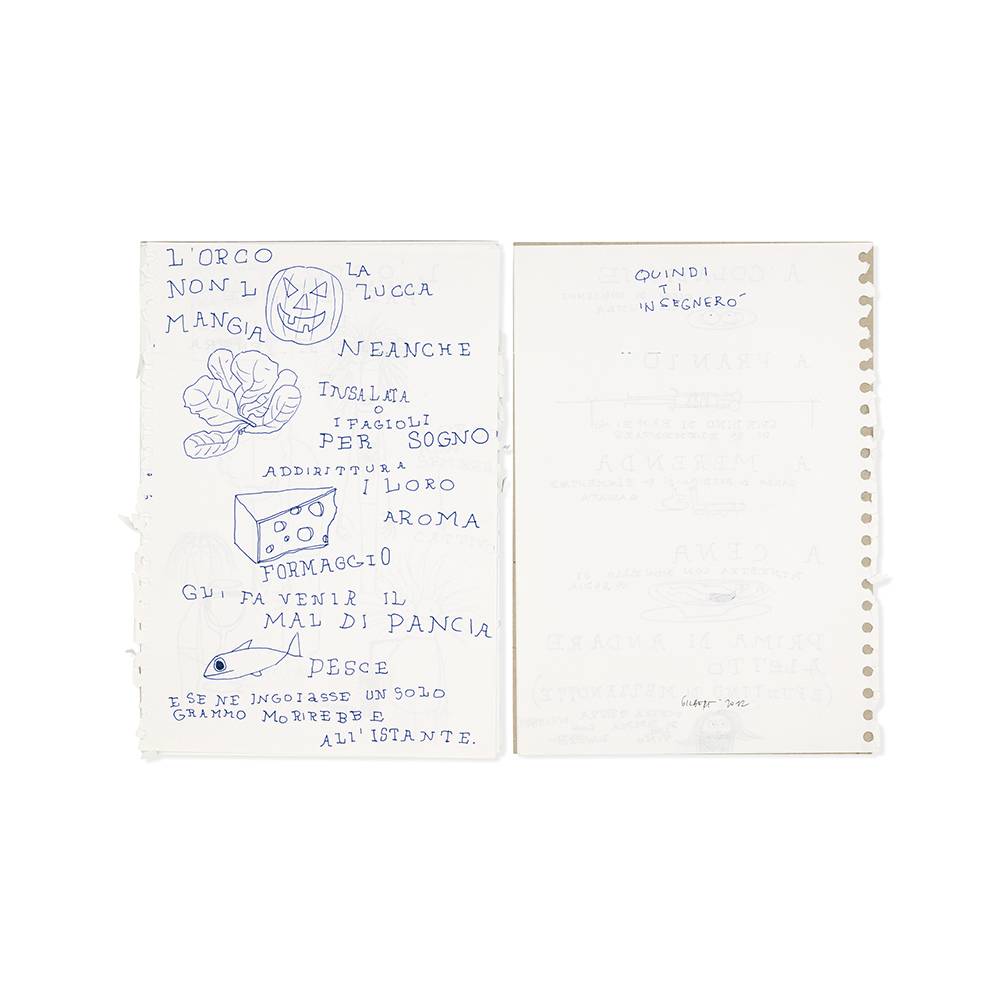 L'ORCO
NON L
LA
ZUCCA
MANGIA
NEANCHE
INSALATA
O
I FAGIOLI
PER SOGNO
ADDIRITTURA
I LORO
AROMA
FORMAGGIO
GLI FA VENIR IL
MAL DI PANCIA
PESCE
E SE NE INGOIASSE UN SOLO
GRAMMO MORIREBBE
ALL'ISTANTE.
QUINDI
TI
INSEGNERÒ
2012